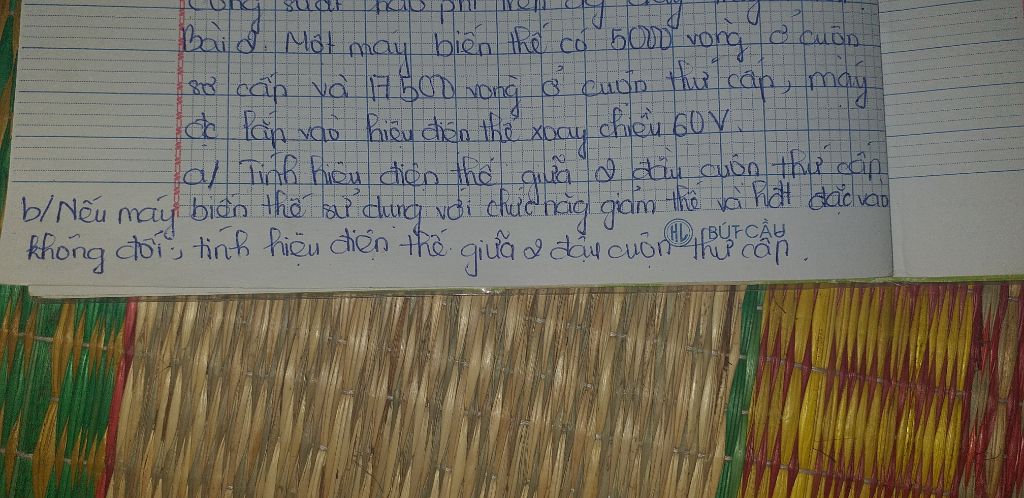 Công suất hao phí trên
Bài 2. Một máy biến thế có 5000 vòng ở cuộn
sơ cấp và 17500 vòng ở cuộn thứ cấp, máy
đc lắp vào hiệu điện thế xoay chiều 60V.
a/ Tính hiệu điện thế giữa 2 đầu cuộn thứ cấp
b/ Nếu máy biến thế sử dụng với chức năg giảm thế và hđt đặt vào
không đổi, tính hiệu điện thế giữa 2 đầu cuộn thứ cấp.
HL BÚT CẦU